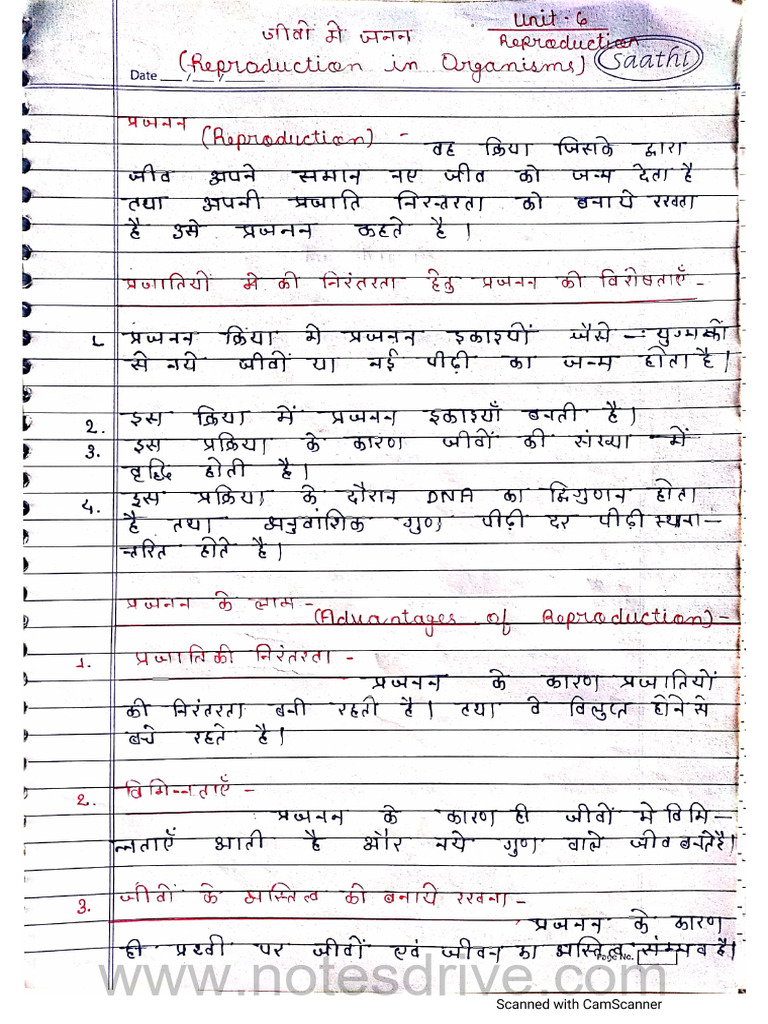 Unit - 6
जीवों मे जनन
Reproduction
(Reproduction in Organisms)
Saathi
Date __/__/____
प्रजनन
(Reproduction) -
वह क्रिया जिसके द्वारा
जीव अपने समान नए जीव को जन्म देता है
तथा अपनी प्रजाति निरन्तरता को बनाये रखता
है उसे प्रजनन कहते है।
प्रजातियों मे की निरंतरता हेतु प्रजनन की विशेषताएँ -
1. प्रजनन क्रिया मे प्रजनन इकाइयों जैसे -: युग्मकों
से नये जीवों या नई पीढ़ी का जन्म होता है।
2. इस क्रिया में प्रजनन इकाइयाँ बनती है।
3. इस प्रक्रिया के कारण जीवों की संख्या में
वृद्धि होती है।
4. इस प्रक्रिया के दौरान DNA का द्विगुणन होता
है तथा अनुवांशिक गुण पीढ़ी दर पीढ़ी स्थाना-
न्तरित होते है।
प्रजनन के लाभ -
(Advantages of Reproduction) -
1. प्रजाति की निरंतरता -
प्रजनन के कारण प्रजातियों
की निरंतरता बनी रहती है। तथा वे विलुप्त होने से
बचे रहते है।
2. विभिन्नताएँ -
प्रजनन के कारण ही जीवों मे विभि-
न्नताएँ आती है और नये गुण वाले जीव बनते है।
3. जीवों के अस्तित्व को बनाये रखना -
प्रजनन के कारण
ही प्रथ्वी पर जीवों एवं जीवन का अस्तित्व संम्भव है।
Page No.
www.notesdrive.com
Scanned with CamScanner